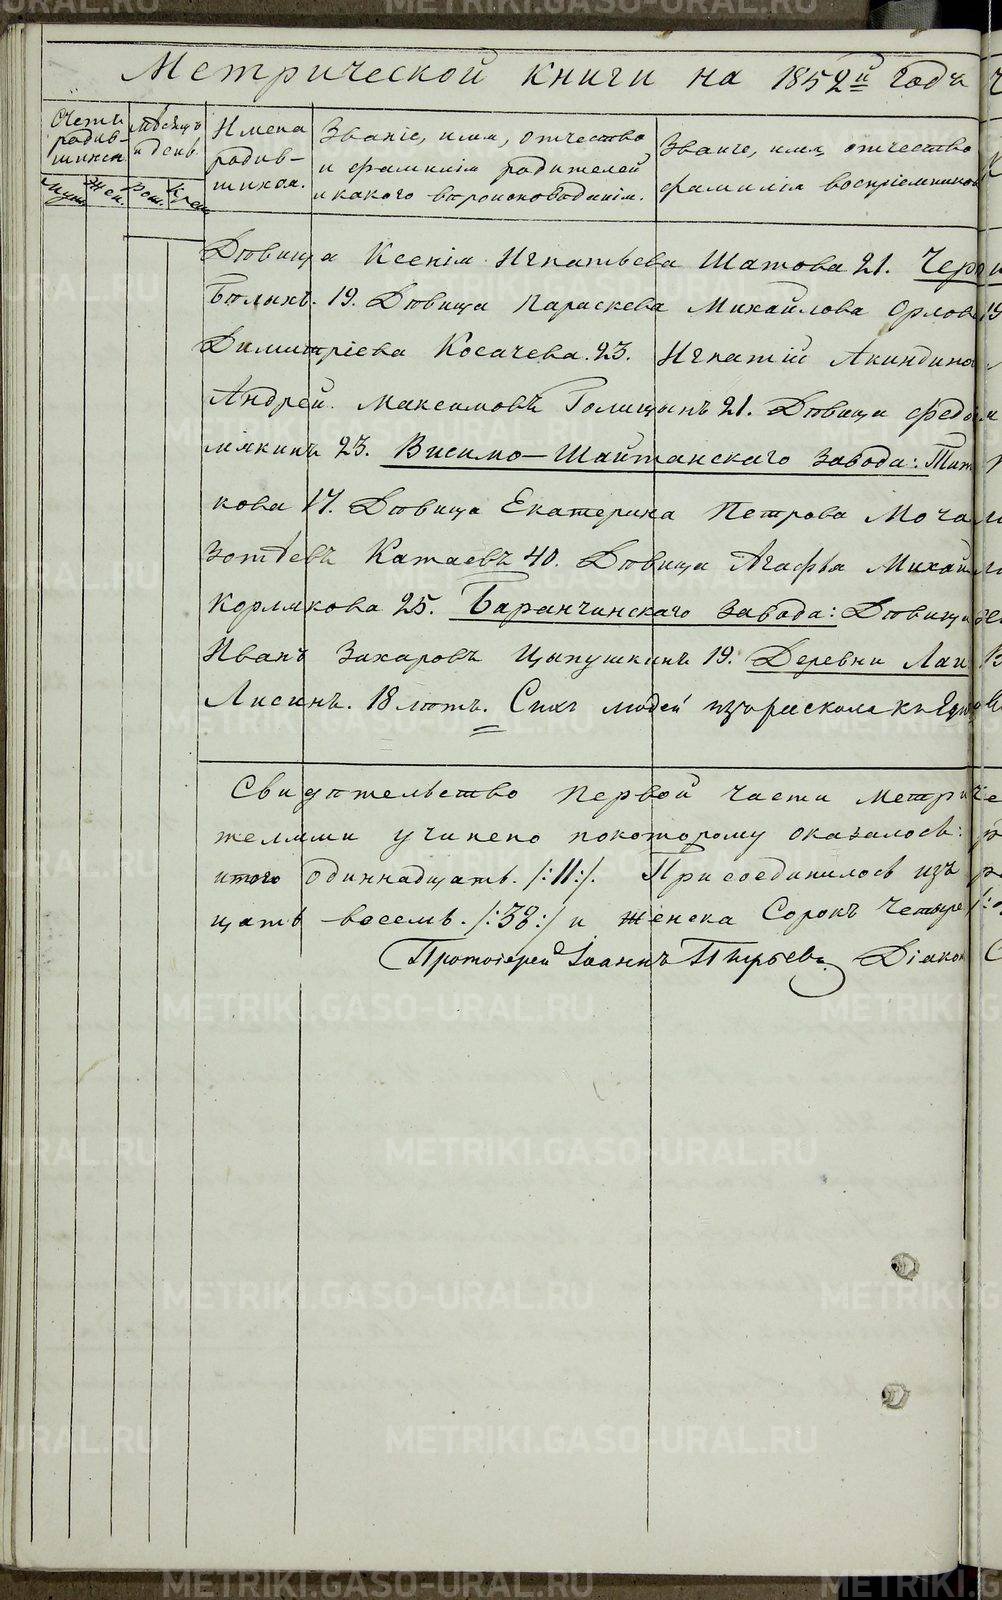 Метрической книги на 1852й годъ
Счетъ родившихся
Муж. Жен.
Мѣсяцъ и день
Рож. Крещ.
Имена родившихся.
Званіе, имя, отчество и фамилія родителей и какого вѣроисповѣданія.
Званіе, имя, отчество фамилія воспріемниковъ
Дѣвица Ксенія Игнатьева Шатова 21. Чер
Бѣлыхъ. 19. Дѣвица Параскева Михайлова Орлов
Димитріева Косачева. 23. Игнатій Акиндино
Андрей Максимовъ Голицынъ 21. Дѣвица Федо
мякинъ 23. Висимо-Шайтанскаго завода: Тит
кова 17. Дѣвица Екатерина Петрова Моча
Зотѣевъ Катаевъ 40. Дѣвица Агафья Михай
Кормякова 25. Баранчинскаго завода: Дѣвица
Иванъ Захаровъ Цыпушкинъ 19. Деревни Лаи
Лисинъ. 18 лѣтъ. Сихъ людей изъ раскола къ Един
Свидѣтельство первой части Метрич
телями учинено по которому оказалось:
итого одиннадцать. /:11:/. Присоединилось изъ
цать восемь. /:38:/ и женска Сорокъ Четыре
Протоіерей Іоаннъ Пырьевъ. Діакон
METRIKI.GASO-URAL.RU